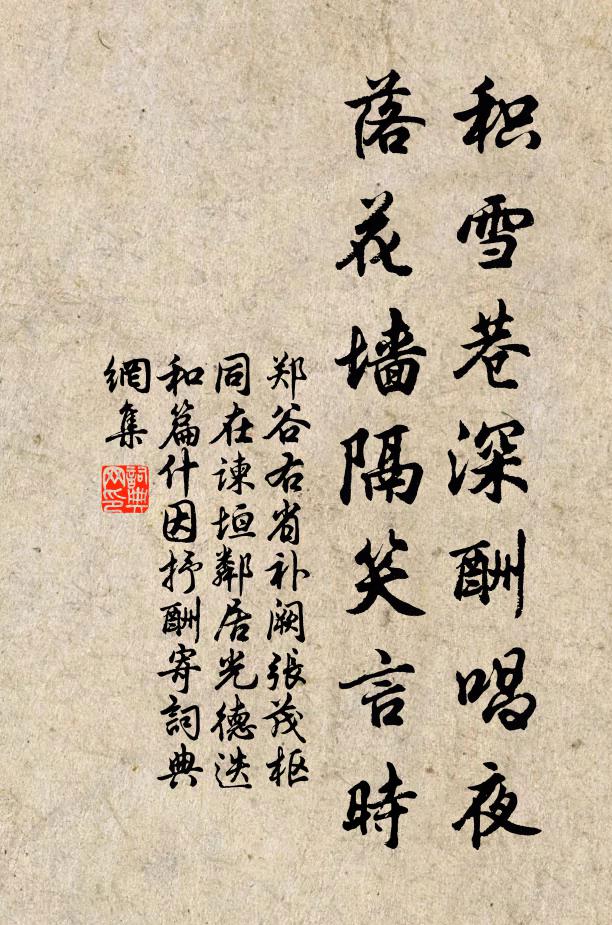 积雪巷深酬唱夜
落花墙隔笑言時
郑谷右省补阙張茂枢
同在谏垣鄰居光德迭
和篇什因抒酬寄詞典
網集
詞典
网印